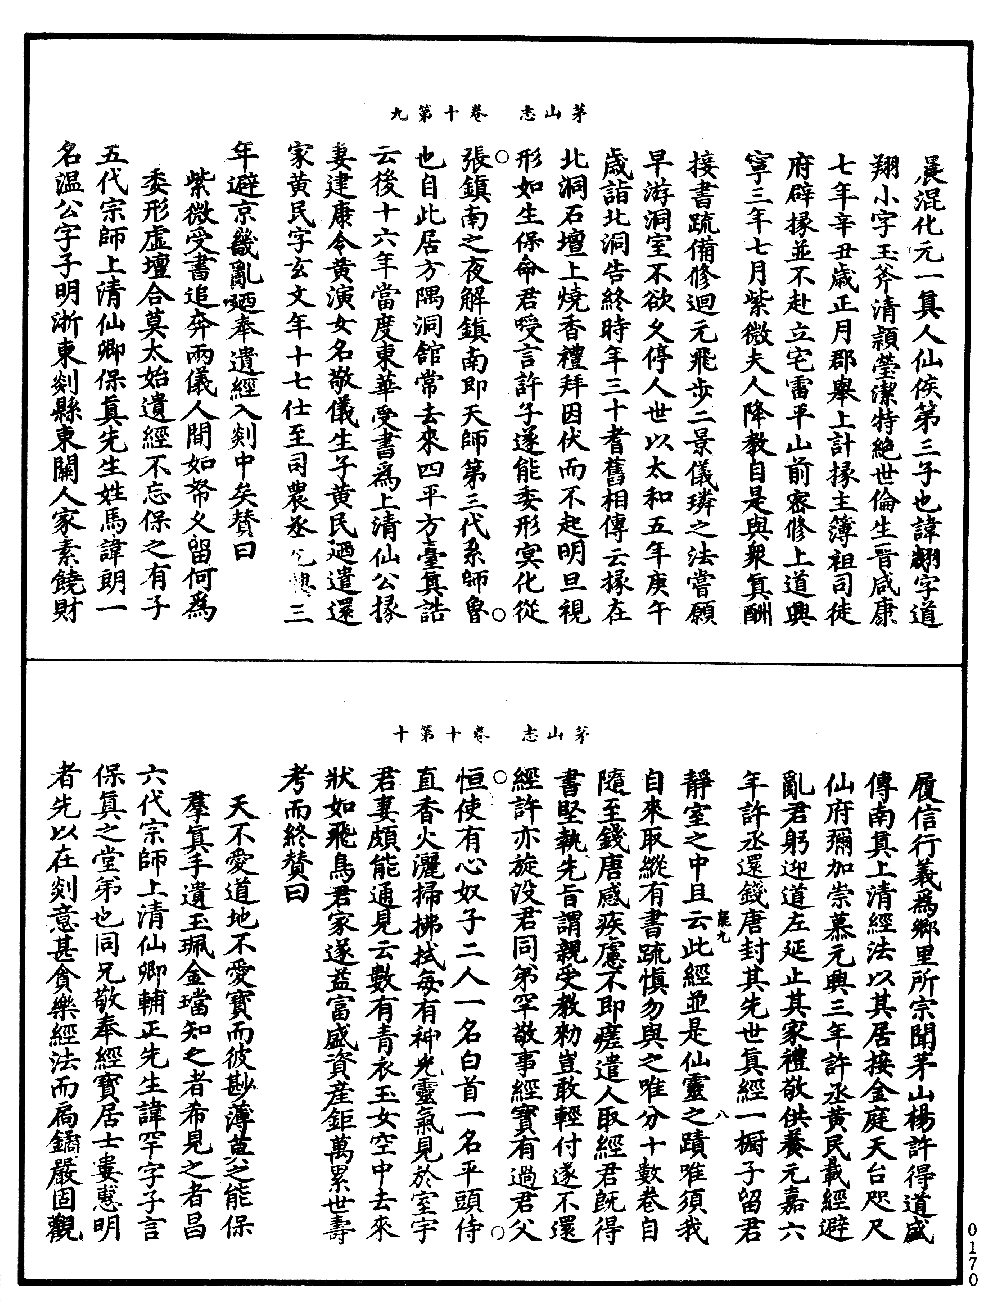 茅山志　卷十第九
晨混化元一真人仙侯第三子也諱翽字道
翔小字玉斧清穎瑩潔特絕世倫生晉咸康
七年辛丑歲正月郡舉上計掾主簿祖司徒
府辟掾並不赴立宅雷平山前密修上道興
寧三年七月紫微夫人降教自是與衆真酬
接書疏備修迴元飛步二景儀璘之法嘗願
早游洞室不欲久停人世以太和五年庚午
歲詣北洞告終時年三十耆舊相傳云掾在
北洞石壇上燒香禮拜因伏而不起明旦視
形如生保命君受言許子遂能委形冥化從
張鎮南之夜解鎮南即天師第三代系師魯
也自此居方隅洞館常去來四平方臺真誥
云後十六年當度東華受書爲上清仙公掾
妻建康令黃演女名敬儀生子黃民迺遣還
家黃民字玄文年十七仕至司農丞元興三
年避京畿亂迺奉遺經入剡中矣贊曰
紫微受書追奔兩儀人間如帑久留何爲
委形虛壇合莫太始遺經不忘保之有子
五代宗師上清仙卿保真先生姓馬諱朗一
名溫公字子明浙東剡縣東闡人家素饒財
茅山志　卷十第十
履信行義爲鄉里所宗聞茅山楊許得道盛
傳南真上清經法以其居接金庭天台咫尺
仙府彌加崇慕元興三年許丞黃民載經避
亂君躬迎道左延止其家禮敬供養元嘉六
年許丞還錢唐封其先世真經一櫥子留君
靜室之中且云此經並是仙靈之蹟唯須我
自來取縱有書疏慎勿與之唯分十數卷自
隨至錢唐感疾慮不即瘥遣人取經君既得
書堅執先旨謂親受教勑豈敢輕付遂不還
經許亦旋沒君同弟罕敬事經寶有過君父
恒使有心奴子二人一名白首一名平頭侍
直香火灑掃拂拭每有神光靈氣見於室宇
君妻頗能通見云數有青衣玉女空中去來
狀如飛鳥君家遂益富盛資産鉅萬累世壽
考而終贊曰
天不愛道地不愛寶而彼尠薄蓝乏能保
羣真手遺玉珮金璫知之者希見之者昌
六代宗師上清仙卿輔正先生諱罕字子言
保真之堂弟也同兄敬奉經寶居士婁惠明
者先以在剡意甚貪樂經法而扃鐍嚴固觀
龍九
八
0170